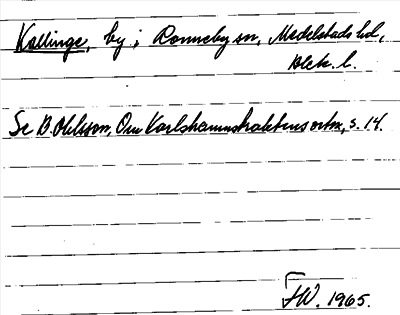 Kallinge, by i Ronneby sn, Medelstads hd,
Blek. l.
Se B. Ohlsson, Om Karlshamnstraktens ortn., s. 14.
FW. 1965.